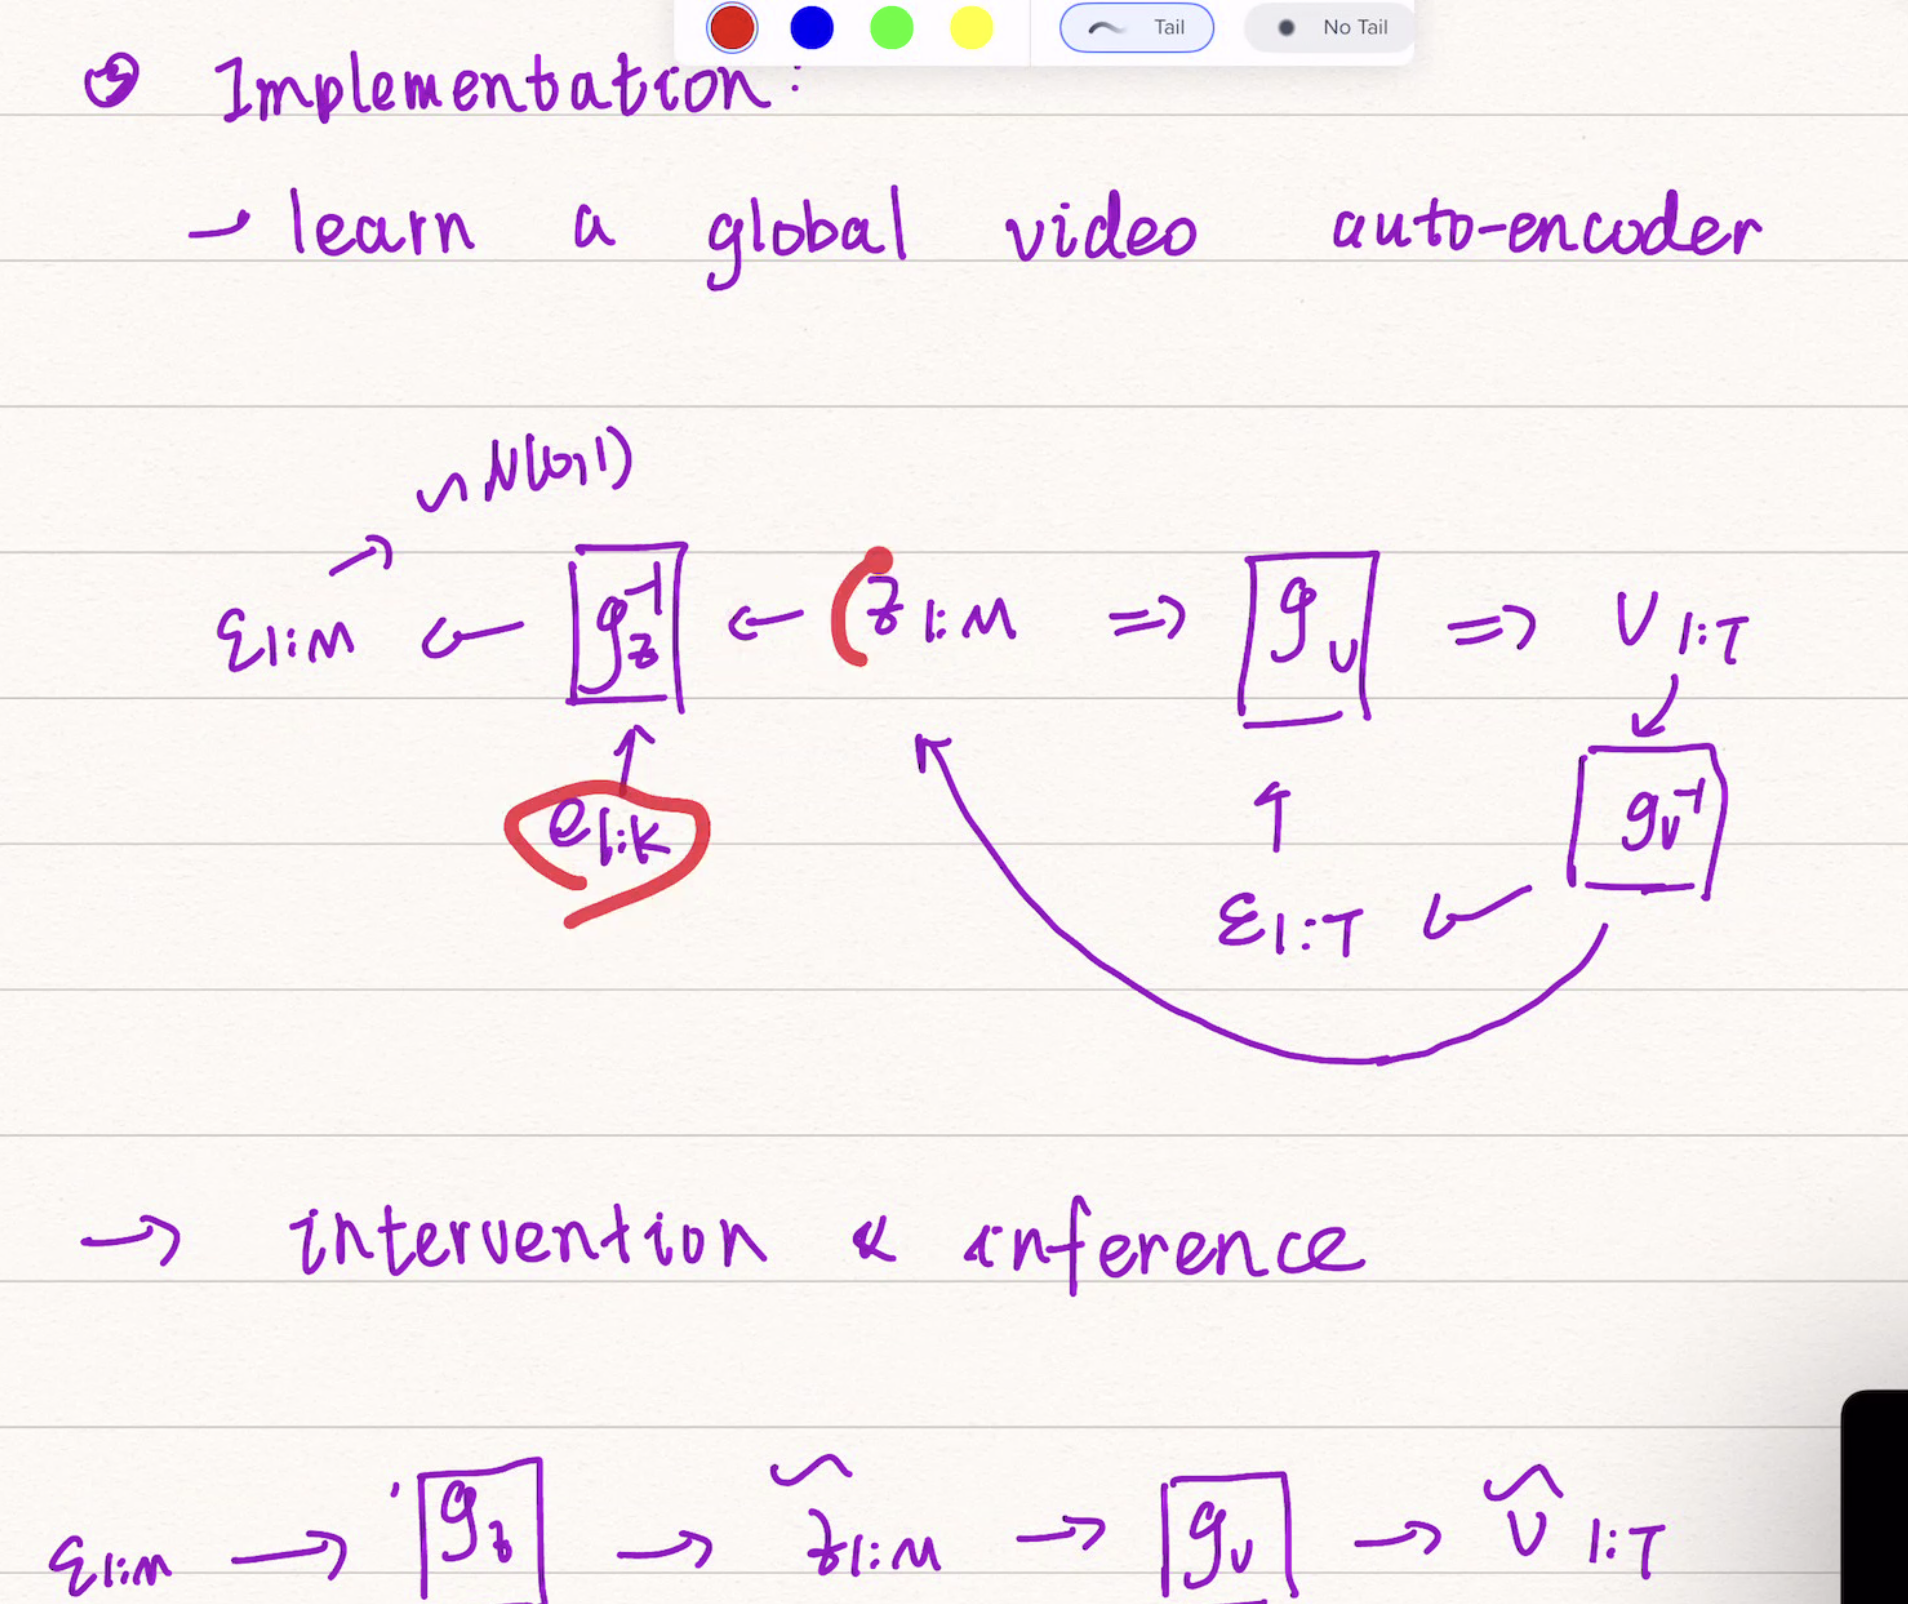 Tail No Tail
③ Implementation:
→ learn a global video auto-encoder
~ N(0,1)
ε1:M ← g_z^-1 ← z1:M ⇒ g_v ⇒ V1:T
e1:K g_v^-1
ε1:T
→ intervention & inference
ε1:M → g_z → z̃1:M → g_v → Ṽ1:T